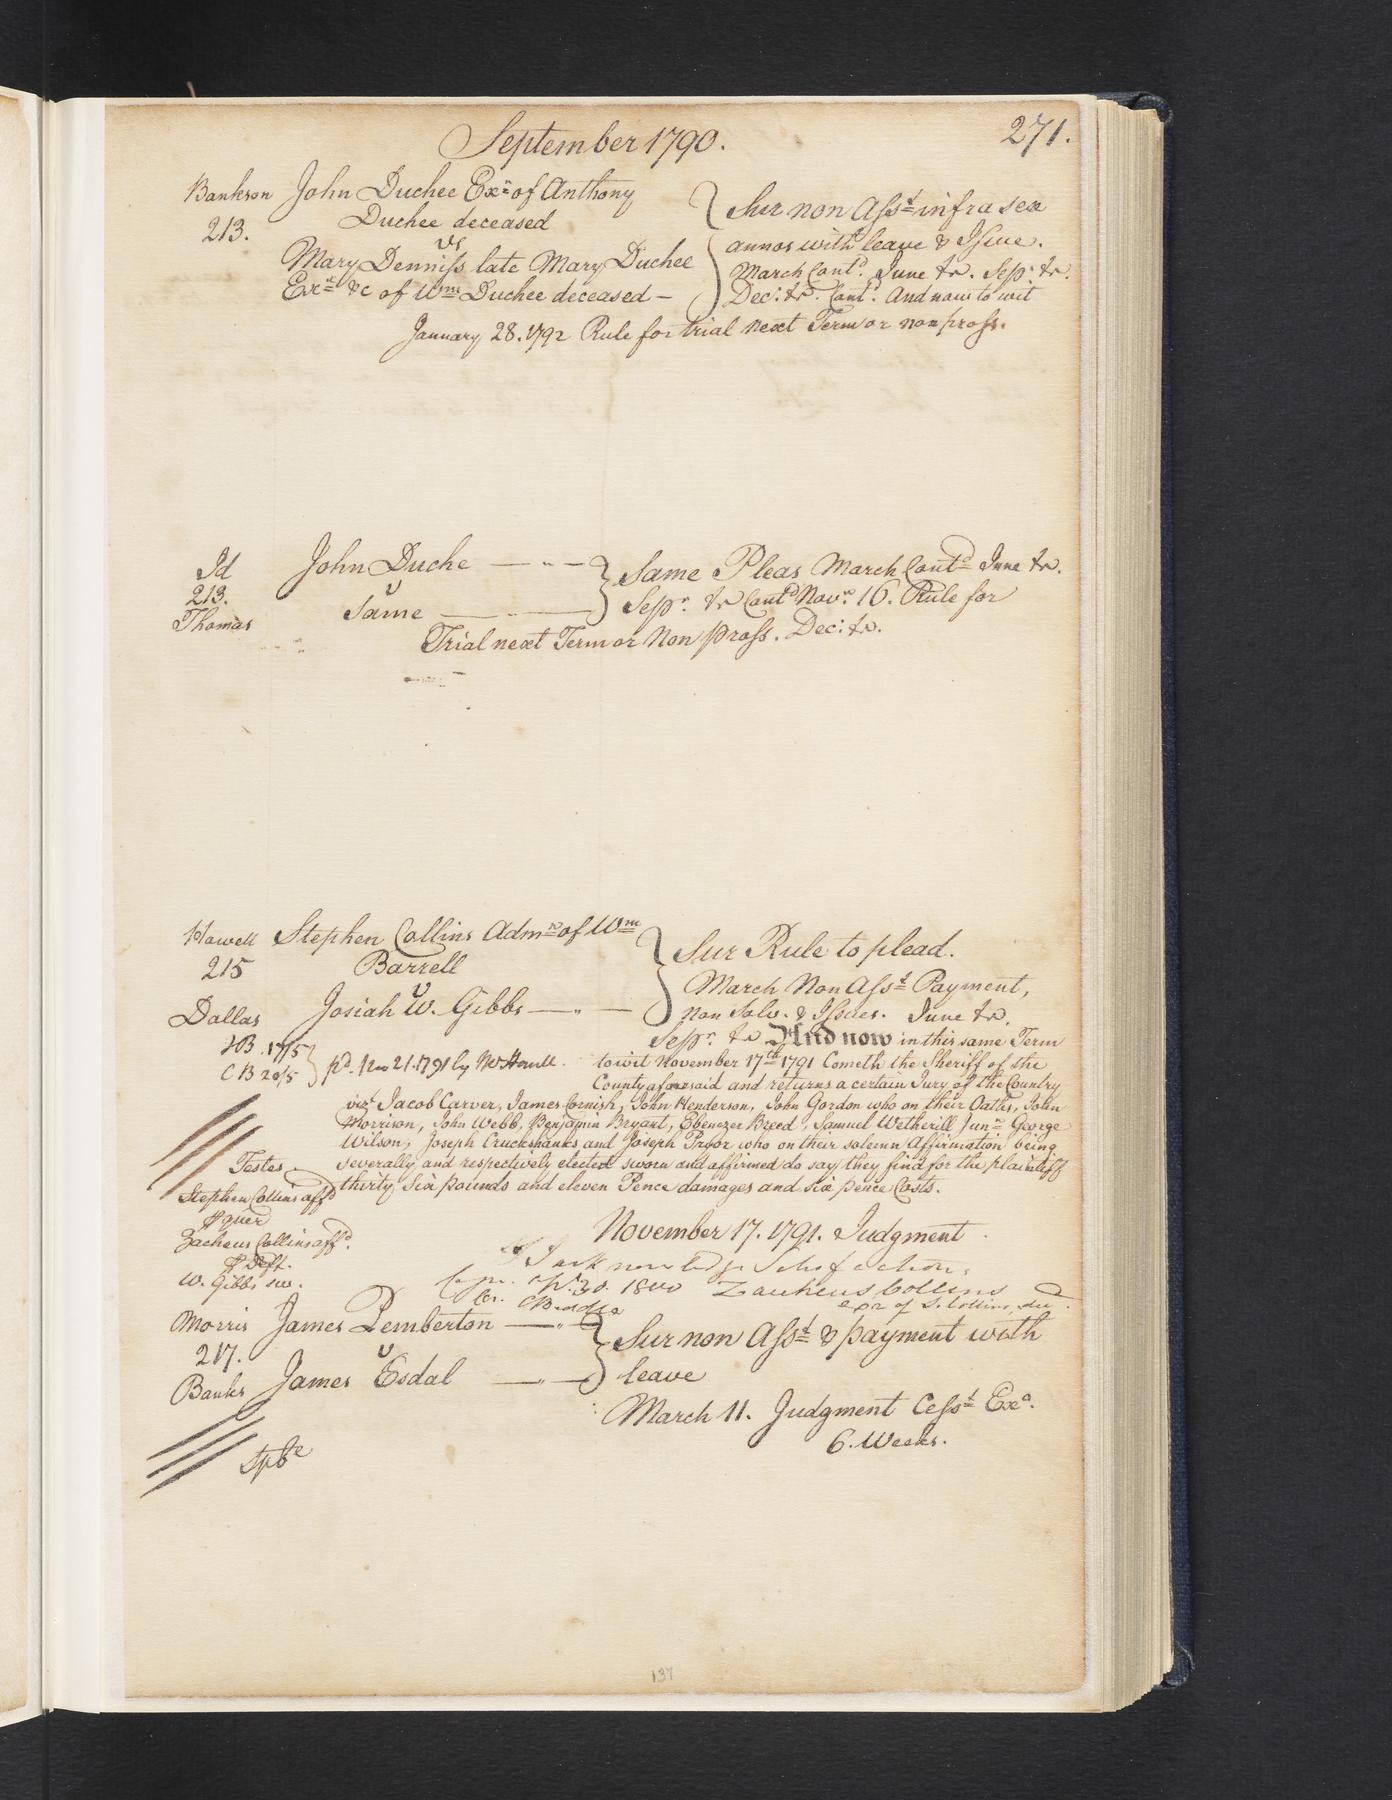 September 1790.
271.
Bankson John Duchee Exr of Anthony
213. Duchee deceased
vs
Mary Denniss late Mary Duchee
Exx &c of Wm Duchee deceased —
Sur non Asst infra sex
annos with leave & Issue.
March Contd. June &c. Sepr. &c.
Dec: &c. Contd. And now to wit
January 28. 1792 Rule for trial next Term or non pross.
Id John Duche — " —
213. v
Thomas Same — " —
Same Pleas March Contd June &c.
Sepr. &c Contd Novr. 16. Rule for
Trial next Term or Non pross. Dec: &c.
Howell Stephen Collins Admr of Wm
215 Barrell
v
Dallas Josiah W. Gibbs — " —
Sur Rule to plead.
March Non Asst Payment,
non Solv. & Issues. June &c.
Sepr. &c And now in this same Term
HB. 17/5
CB 20/5
pd. Nov 21. 1791 by Mr Howell.
to wit November 17th 1791 Cometh the Sheriff of the
County aforesaid and returns a certain Jury of the Country
vizt Jacob Carver, James Cornish, John Henderson, John Gordon who on their Oaths, John
Morrison, John Webb, Benjamin Bryant, Ebenezer Breed, Samuel Wetherill Junr George
Wilson, Joseph Cruckshanks and Joseph Pryor who on their solemn Affirmation being
severally and respectively elected sworn and affirmed do say they find for the plaintiff
thirty Six pounds and eleven Pence damages and six pence Costs.
Testes
Stephen Collins affd
p quer
Zacheus Collins affd.
p Deft.
W. Gibbs sw.
November 17. 1791. Judgment
I acknowledge Satisfaction,
30. 1800 Zacheus Collins
exr of S. Collins, decd.
C Biddle
Morris James Pemberton — " —
217. v
Banks James Esdal — " —
Sur non Asst & payment with
leave
March 11. Judgment Cesst Exo.
6. Weeks.
137